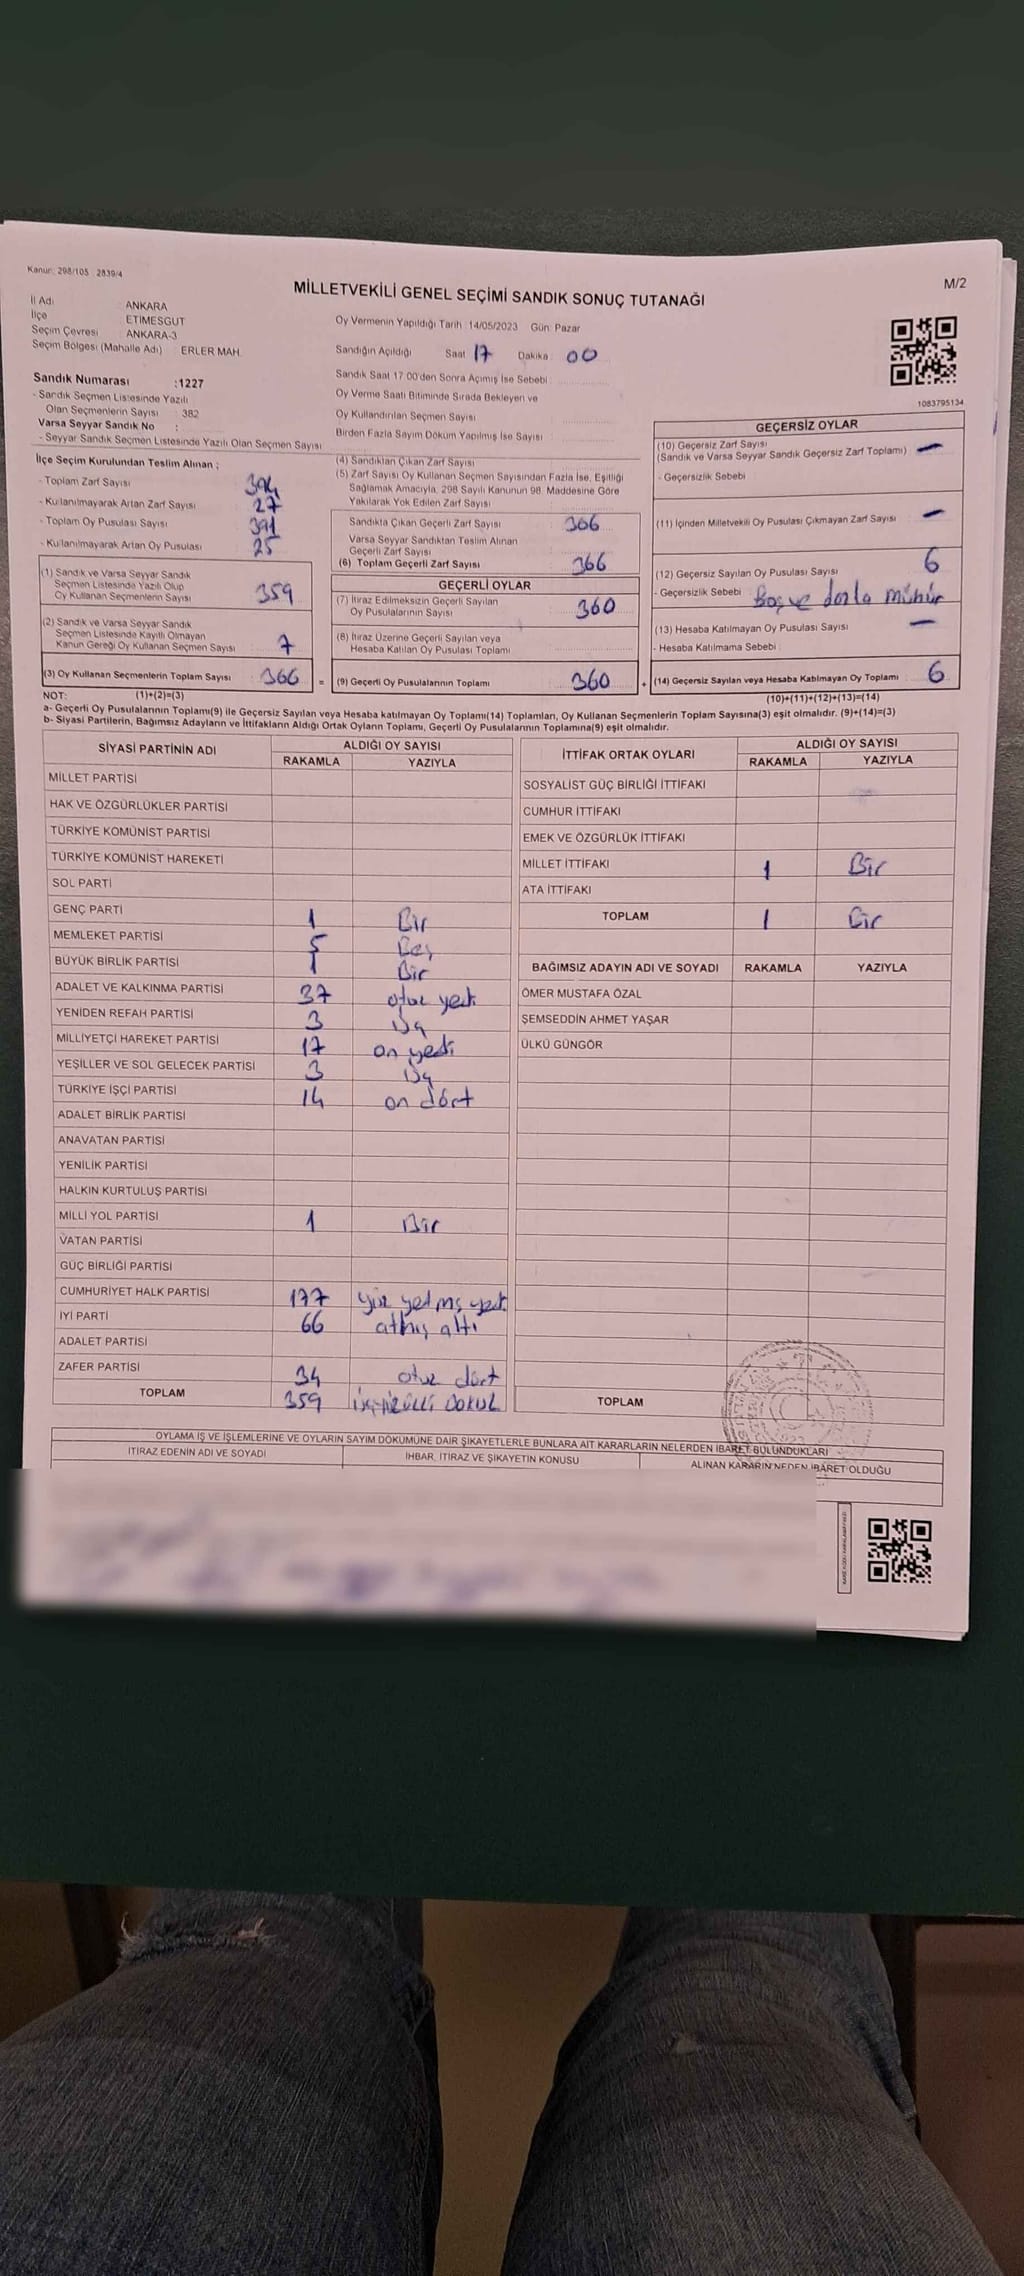 Kanun: 298/105 2839/4
M/2
MİLLETVEKİLİ GENEL SEÇİMİ SANDIK SONUÇ TUTANAĞI
İl Adı ANKARA
İlçe ETİMESGUT
Seçim Çevresi ANKARA-3
Seçim Bölgesi (Mahalle Adı) : ERLER MAH.
Sandık Numarası :1227
- Sandık Seçmen Listesinde Yazılı
Olan Seçmenlerin Sayısı : 382
Varsa Seyyar Sandık No :
- Seyyar Sandık Seçmen Listesinde Yazılı Olan Seçmen Sayısı
Oy Vermenin Yapıldığı Tarih : 14/05/2023 Gün: Pazar
Sandığın Açıldığı Saat 17 Dakika : 00
Sandık Saat 17:00'den Sonra Açımış İse Sebebi :
Oy Verme Saati Bitiminde Sırada Bekleyen ve
Oy Kullandırılan Seçmen Sayısı :
Birden Fazla Sayım Döküm Yapılmış İse Sayısı :
1083795134
İlçe Seçim Kurulundan Teslim Alınan ;
- Toplam Zarf Sayısı
- Kullanılmayarak Artan Zarf Sayısı : 27
- Toplam Oy Pusulası Sayısı : 391
- Kullanılmayarak Artan Oy Pusulası : 25
(1) Sandık ve Varsa Seyyar Sandık
Seçmen Listesinde Yazılı Olup
Oy Kullanan Seçmenlerin Sayısı : 359
(2) Sandık ve Varsa Seyyar Sandık
Seçmen Listesinde Kayıtlı Olmayan
Kanun Gereği Oy Kullanan Seçmen Sayısı : 7
(3) Oy Kullanan Seçmenlerin Toplam Sayısı : 366
(4) Sandıktan Çıkan Zarf Sayısı
(5) Zarf Sayısı Oy Kullanan Seçmen Sayısından Fazla İse, Eşitliği
Sağlamak Amacıyla, 298 Sayılı Kanunun 98. Maddesine Göre
Yakılarak Yok Edilen Zarf Sayısı
Sandıkta Çıkan Geçerli Zarf Sayısı : 366
Varsa Seyyar Sandıktan Teslim Alınan
Geçerli Zarf Sayısı
(6) Toplam Geçerli Zarf Sayısı : 366
GEÇERLİ OYLAR
(7) İtiraz Edilmeksizin Geçerli Sayılan
Oy Pusulalarının Sayısı : 360
(8) İtiraz Üzerine Geçerli Sayılan veya
Hesaba Katılan Oy Pusulası Toplamı
= (9) Geçerli Oy Pusulalarının Toplamı : 360
GEÇERSİZ OYLAR
(10) Geçersiz Zarf Sayısı : —
(Sandık ve Varsa Seyyar Sandık Geçersiz Zarf Toplamı)
- Geçersizlik Sebebi
(11) İçinden Milletvekili Oy Pusulası Çıkmayan Zarf Sayısı : —
(12) Geçersiz Sayılan Oy Pusulası Sayısı : 6
- Geçersizlik Sebebi : Boş ve fazla mühür
(13) Hesaba Katılmayan Oy Pusulası Sayısı : —
- Hesaba Katılmama Sebebi :
+ (14) Geçersiz Sayılan veya Hesaba Katılmayan Oy Toplamı : 6
NOT: (1)+(2)=(3) (10)+(11)+(12)+(13)=(14)
a- Geçerli Oy Pusulalarının Toplamı(9) ile Geçersiz Sayılan veya Hesaba katılmayan Oy Toplamı(14) Toplamları, Oy Kullanan Seçmenlerin Toplam Sayısına(3) eşit olmalıdır. (9)+(14)=(3)
b- Siyasi Partilerin, Bağımsız Adayların ve İttifakların Aldığı Ortak Oyların Toplamı, Geçerli Oy Pusulalarının Toplamına(9) eşit olmalıdır.
SİYASİ PARTİNİN ADI ALDIĞI OY SAYISI
RAKAMLA YAZIYLA
MİLLET PARTİSİ
HAK VE ÖZGÜRLÜKLER PARTİSİ
TÜRKİYE KOMÜNİST PARTİSİ
TÜRKİYE KOMÜNİST HAREKETİ
SOL PARTİ
GENÇ PARTİ 1 Bir
MEMLEKET PARTİSİ 5 Beş
BÜYÜK BİRLİK PARTİSİ 1 Bir
ADALET VE KALKINMA PARTİSİ 37 otuz yedi
YENİDEN REFAH PARTİSİ 3 Üç
MİLLİYETÇİ HAREKET PARTİSİ 17 on yedi
YEŞİLLER VE SOL GELECEK PARTİSİ 3 Üç
TÜRKİYE İŞÇİ PARTİSİ 14 on dört
ADALET BİRLİK PARTİSİ
ANAVATAN PARTİSİ
YENİLİK PARTİSİ
HALKIN KURTULUŞ PARTİSİ
MİLLİ YOL PARTİSİ 1 Bir
VATAN PARTİSİ
GÜÇ BİRLİĞİ PARTİSİ
CUMHURİYET HALK PARTİSİ 177 yüz yetmiş yedi
İYİ PARTİ 66 atmış altı
ADALET PARTİSİ
ZAFER PARTİSİ 34 otuz dört
TOPLAM 359
İTTİFAK ORTAK OYLARI ALDIĞI OY SAYISI
RAKAMLA YAZIYLA
SOSYALİST GÜÇ BİRLİĞİ İTTİFAKI
CUMHUR İTTİFAKI
EMEK VE ÖZGÜRLÜK İTTİFAKI
MİLLET İTTİFAKI 1 Bir
ATA İTTİFAKI
TOPLAM 1 Bir
BAĞIMSIZ ADAYIN ADI VE SOYADI RAKAMLA YAZIYLA
ÖMER MUSTAFA ÖZAL
ŞEMSEDDİN AHMET YAŞAR
ÜLKÜ GÜNGÖR
TOPLAM
OYLAMA İŞ VE İŞLEMLERİNE VE OYLARIN SAYIM DÖKÜMÜNE DAİR ŞİKAYETLERLE BUNLARA AİT KARARLARIN NELERDEN İBARET BULUNDUKLARI
İTİRAZ EDENİN ADI VE SOYADI İHBAR, İTİRAZ VE ŞİKAYETİN KONUSU ALINAN KARARIN NEDEN İBARET OLDUĞU